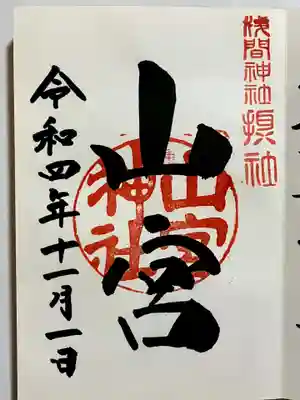 浅間神社摂社
山宮
山宮神社
令和四年十一月一日